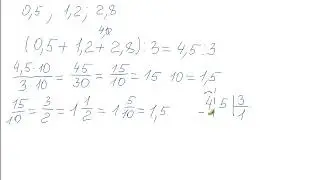 0,5 ; 1,2 ; 2,8
(0,5 + 1,2 + 2,8) : 3 = 4,5 : 3
4,5·10/3·10 = 45/30 = 15/10 = 15 : 10 = 1,5
15/10 = 3/2 = 1 1/2 = 1 5/10 = 1,5
4 5 | 3
1